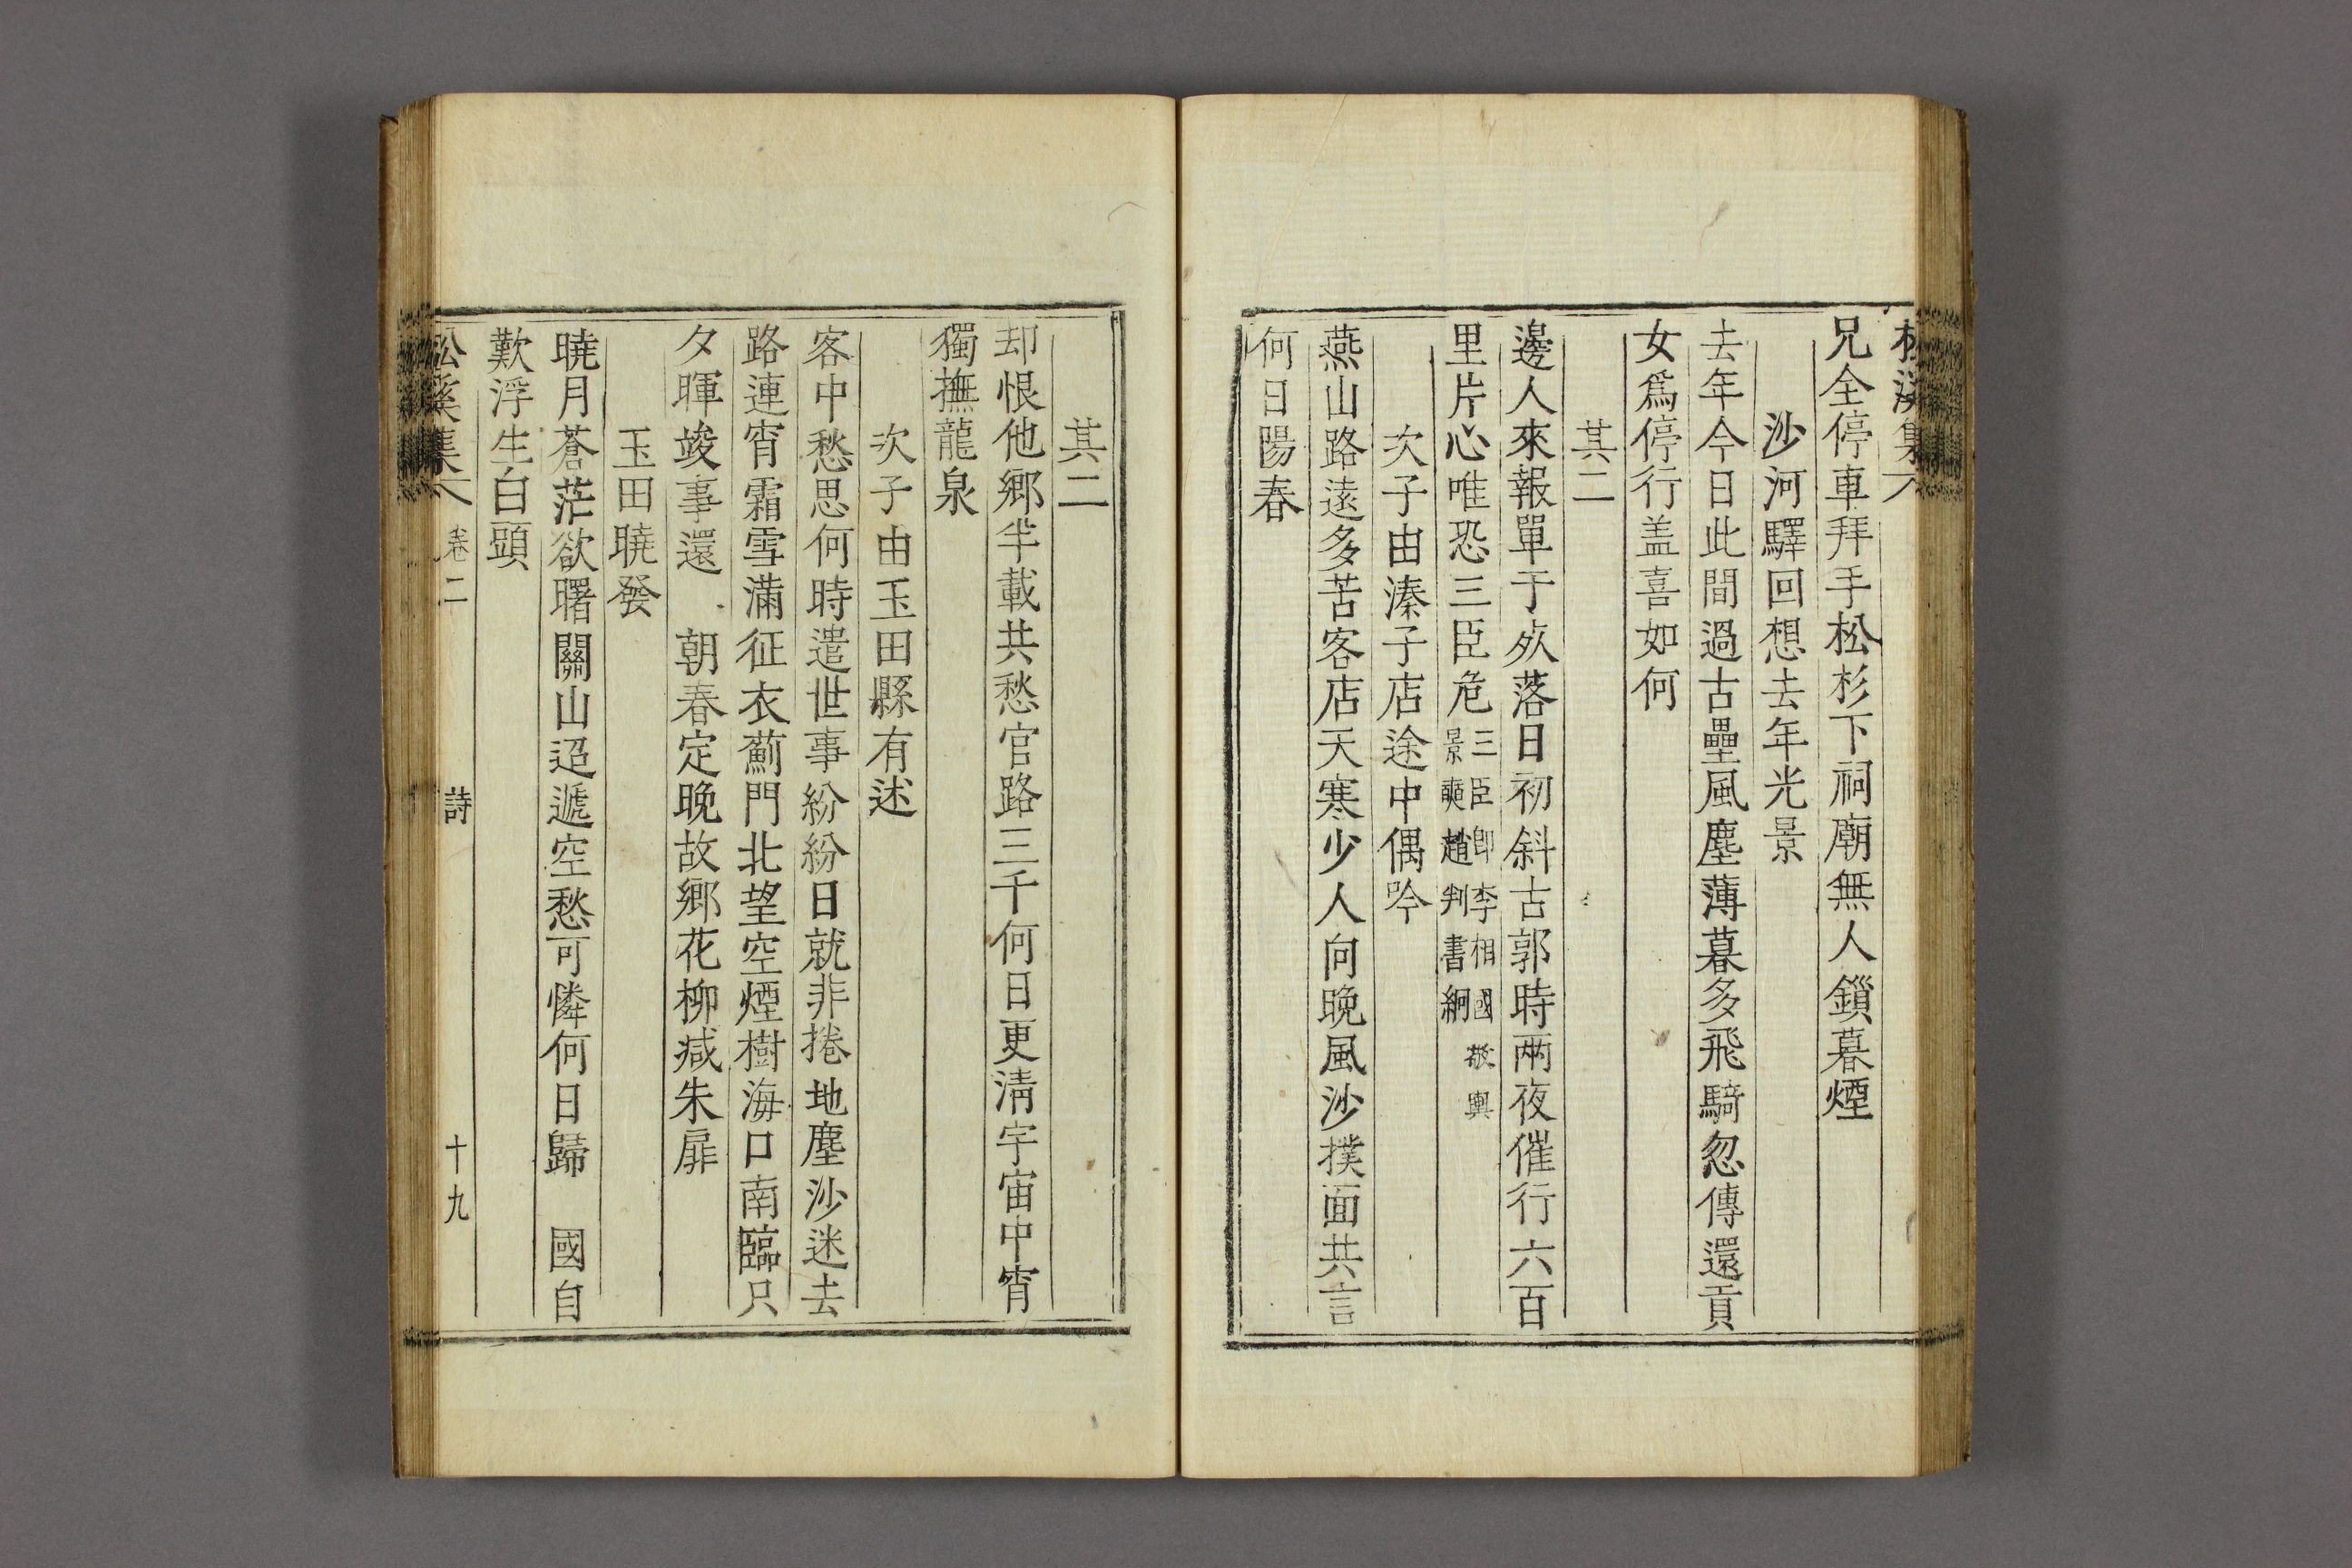 兄全停車拜手松杉下祠廟無人鎖暮煙
沙河驛回想去年光景
去年今日此間過古壘風塵薄暮多飛騎忽傳還貢
女爲停行盖喜如何
其二
邊人來報單于㱙落日初斜古郭時兩夜催行六百
里片心唯恐三臣危三臣卽李相國敬輿
景奭趙判書絅
次子由溱子店途中偶吟
燕山路遠多苦客店天寒少人向晚風沙撲面共言
何日陽春
其二
却恨他鄉半載共愁官路三千何日更淸宇宙中宵
獨撫龍泉
次子由玉田縣有述
客中愁思何時遣世事紛紛日就非捲地塵沙迷去
路連宵霜雪滿征衣薊門北望空煙樹海口南臨只
夕暉竣事還 朝春定晚故鄉花柳减朱扉
玉田曉發
曉月蒼茫欲曙關山迢遞空愁可憐何日歸 國自
歎浮生白頭
松溪集 卷二 詩 十九